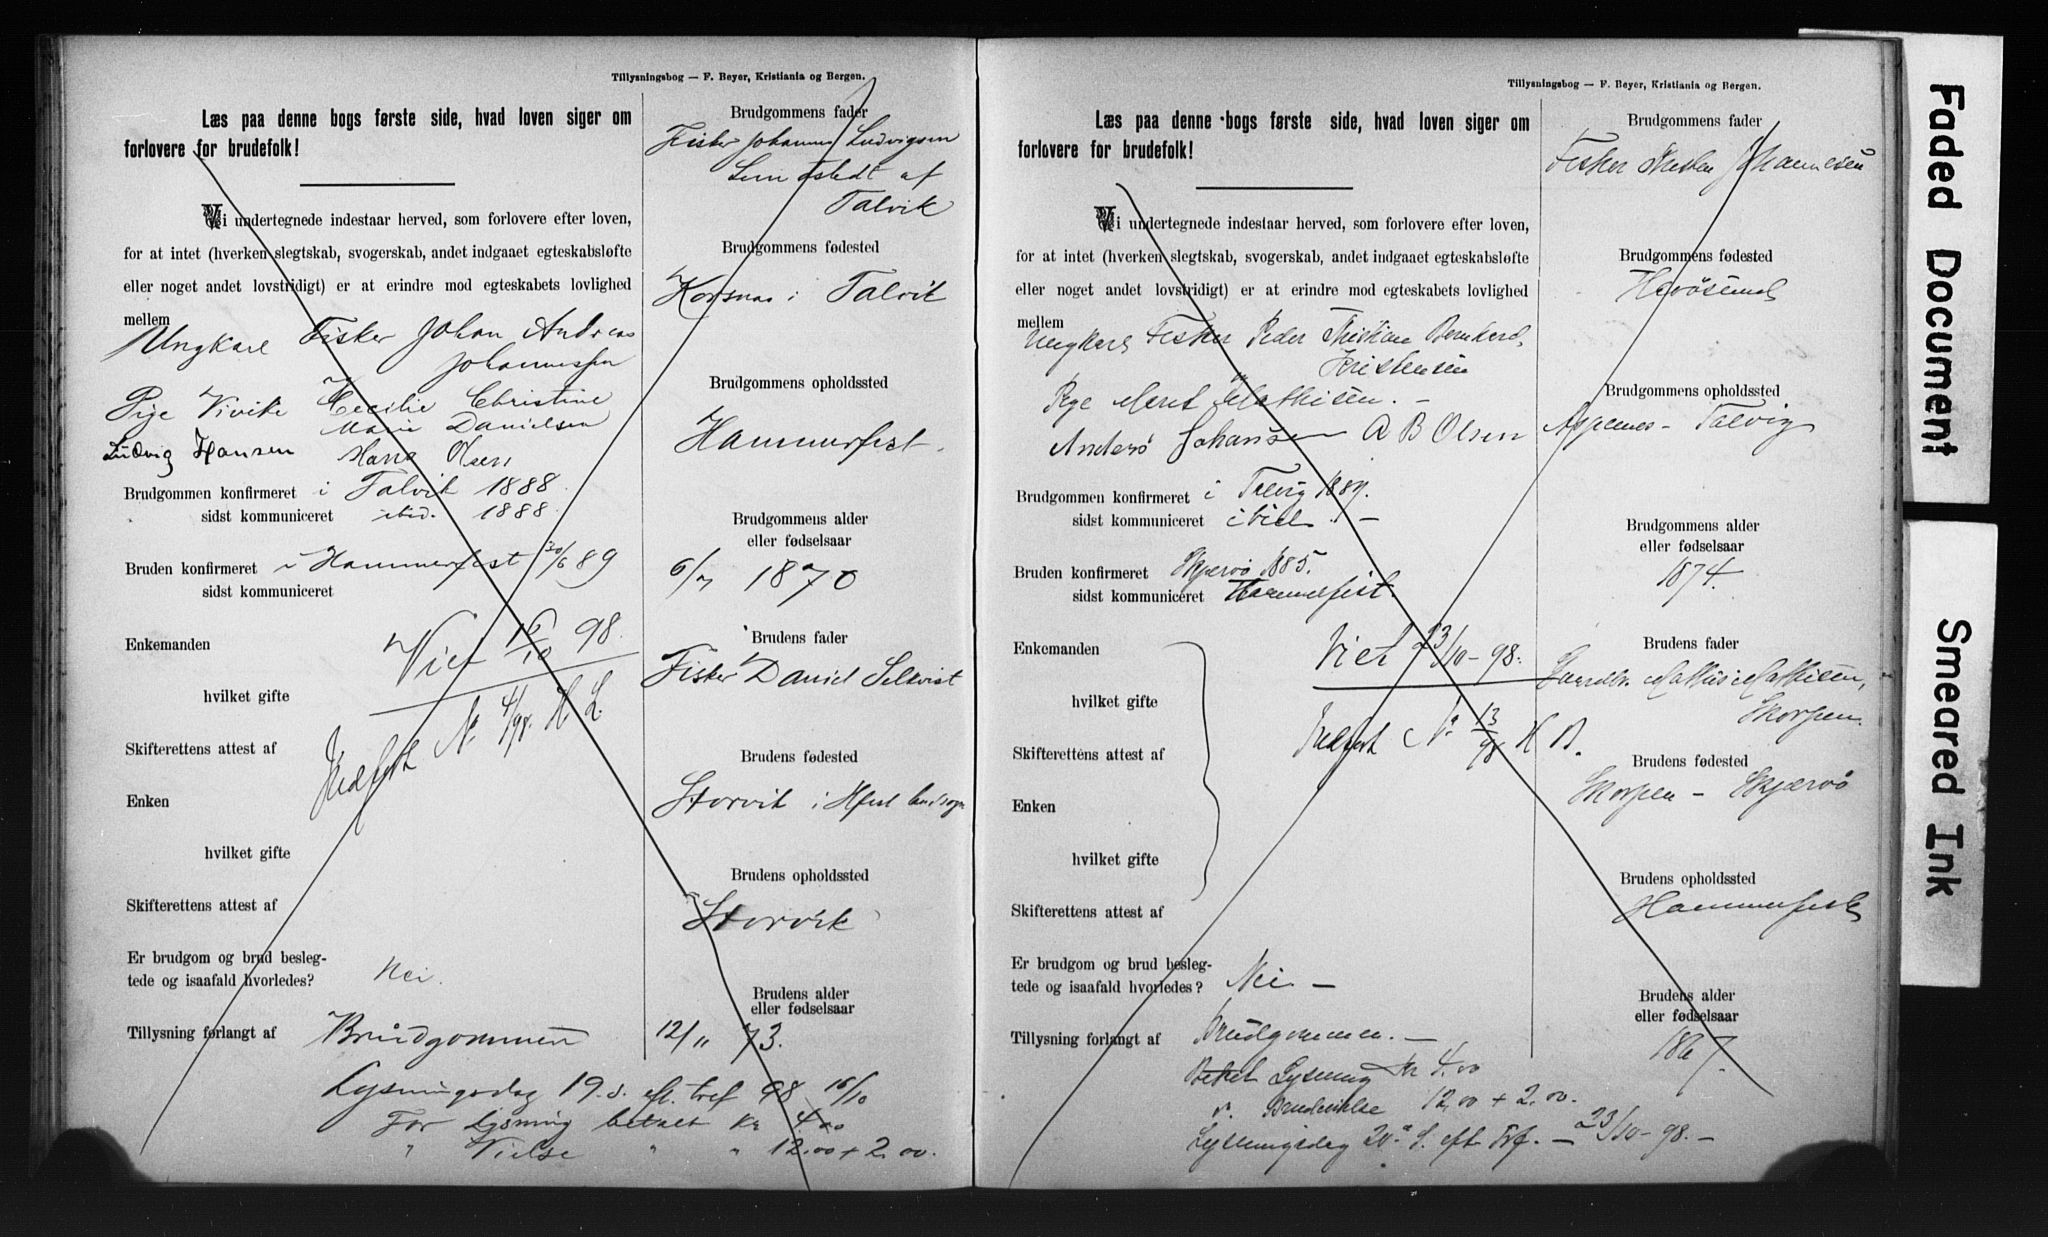 Tillysningsbog — F. Beyer, Kristiania og Bergen.
Læs paa denne bogs første side, hvad loven siger om
forlovere for brudefolk!
Vi undertegnede indestaar herved, som forlovere efter loven,
for at intet (hverken slegtskab, svogerskab, andet indgaaet egteskabsløfte
eller noget andet lovstridigt) er at erindre mod egteskabets lovlighed
mellem
Ungkarl Fisker Johan Andreas
Johannessen
Pige Vivike Cecilie Christine
Marie Danielsen
Ludvig Hansen Hans Olsen
Brudgommen konfirmeret i Talvik 1888
sidst kommuniceret ibid. 1888
Bruden konfirmeret i Hammerfest 30/6 89
sidst kommuniceret
Enkemanden
Viet 16/10 98.
hvilket gifte
Indført No 4/98. H. L.
Skifterettens attest af
Enken
hvilket gifte
Skifterettens attest af
Er brudgom og brud besleg-
tede og isaafald hvorledes? Nei.
Tillysning forlangt af Brudgommen
Lysningsdag 19. s. eft. tref 98 16/10
For Lysning betalt Kr 4.00
" Vielse " " 12.00 + 2.00.
Brudgommens fader
Fisker Johannes Ludvigsen
af
Talvik
Brudgommens fødested
Korsnes i Talvik
Brudgommens opholdssted
Hammerfest
Brudgommens alder
eller fødselsaar
6/7 1870
Brudens fader
Fisker Daniel Selkvist
Brudens fødested
Storvik i Hfest landsogn
Brudens opholdssted
Storvik
Brudens alder
eller fødselsaar
12/11 73.
Tillysningsbog — F. Beyer, Kristiania og Bergen.
Læs paa denne bogs første side, hvad loven siger om
forlovere for brudefolk!
Vi undertegnede indestaar herved, som forlovere efter loven,
for at intet (hverken slegtskab, svogerskab, andet indgaaet egteskabsløfte
eller noget andet lovstridigt) er at erindre mod egteskabets lovlighed
mellem
Ungkarl Fisker Peder Kristian Bernhard
Kristensen
og
Pige Maret Mathisen. —
Anders Johansen A B Olsen
Brudgommen konfirmeret i Talvig 1889.
sidst kommuniceret ibid. —
Bruden konfirmeret Skjervø 1885.
sidst kommuniceret Hammerfest.
Enkemanden
Viet 23/10-98.
hvilket gifte
Indført No 13/98 H B.
Skifterettens attest af
Enken
hvilket gifte
Skifterettens attest af
Er brudgom og brud besleg-
tede og isaafald hvorledes? Nei. —
Tillysning forlangt af Brudgommen. —
Betalt Lysning Kr 4.00
" Brudevielse 12,00 + 2.00.
Lysningsdag 20de S. eft Tref. — 23/10-98. —
Brudgommens fader
Fisker Kristen Johannesen
Brudgommens fødested
Brudgommens opholdssted
Aspenes - Talvig
Brudgommens alder
eller fødselsaar
1874.
Brudens fader
Gaardbr. Mathis Mathisen,
Skorpen.
Brudens fødested
Skorpen - Skjærvø
Brudens opholdssted
Hammerfest
Brudens alder
eller fødselsaar
1867.
Faded Document
Smeared Ink